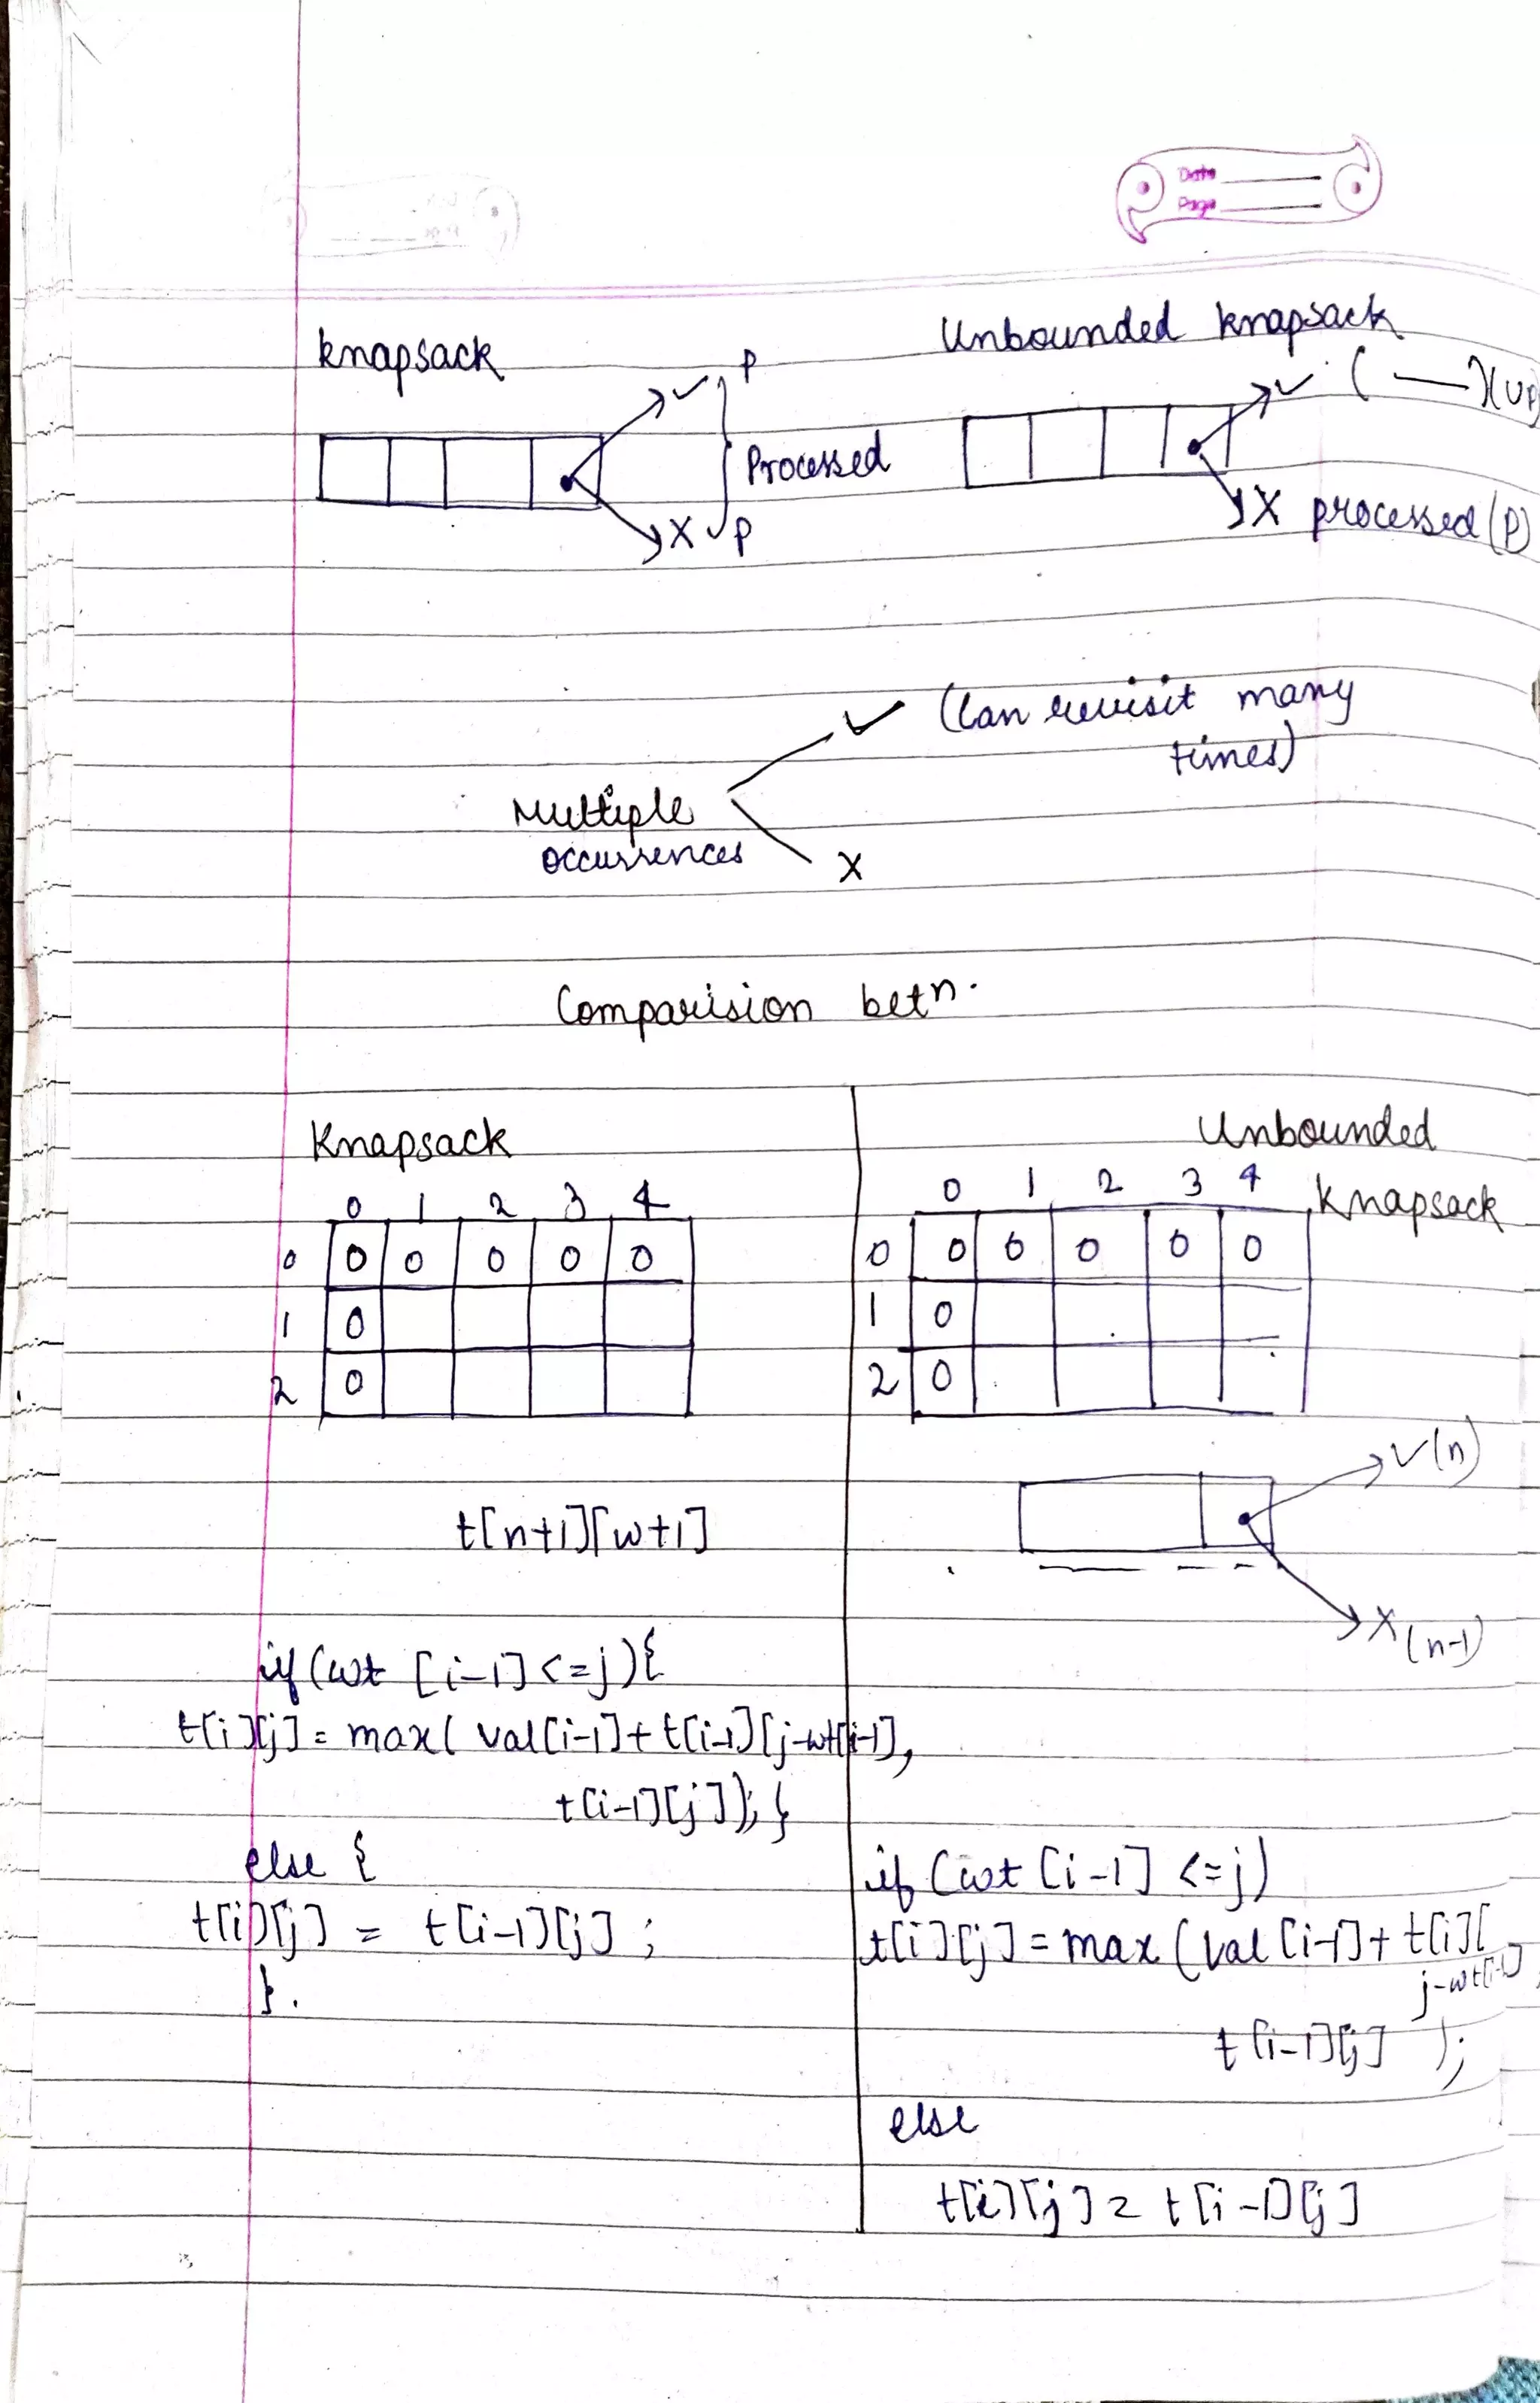 Date
Page
knapsack
Unbounded knapsack
✓ P
Processed
X P
✓ ( — ) (UP)
X processed (P)
✓ (Can revisit many
times)
Multiple
occurrences
X
Comparision betn.
Knapsack
0 1 2 3 4
0 0 0 0 0 0
1 0
2 0
t[n+1][w+1]
if (wt [i-1] <=j){
t[i][j] = max( val[i-1] + t[i-1][j-wt[i-1],
t[i-1][j]); }
else {
t[i][j] = t[i-1][j] ;
}.
Unbounded
Knapsack
0 1 2 3 4
0 0 0 0 0 0
1 0
2 0
✓(n)
X (n-1)
if (wt [i-1] <=j)
t[i][j] = max (val [i-1] + t[i][
j-wt[i-1],
t[i-1][j] );
else
t[i][j] = t[i-1][j]